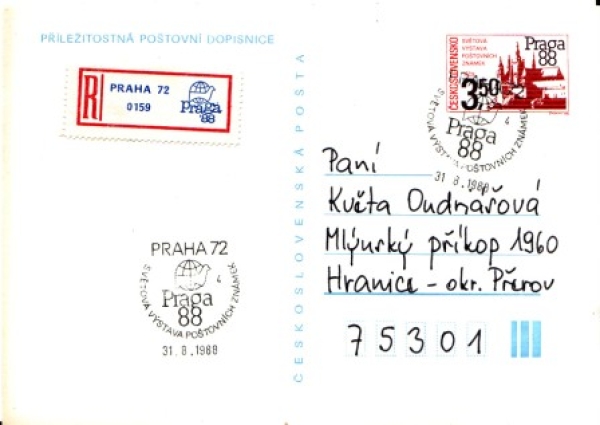 PŘÍLEŽITOSTNÁ POŠTOVNÍ DOPISNICE
R
PRAHA 72
0159
Praga
'88
ČESKOSLOVENSKÁ POŠTA
ČESKOSLOVENSKO
SVĚTOVÁ
VÝSTAVA
POŠTOVNÍCH
ZNÁMEK
Praga
88
3,50
72
4
Praga
88
SVĚTOVÁ VÝSTAVA POŠTOVNÍCH ZNÁMEK
31.8.1988
Paní
Květa Oudnářová
Mlýnský příkop 1960
Hranice - okr. Přerov
75301
PRAHA 72
4
Praga
88
SVĚTOVÁ VÝSTAVA POŠTOVNÍCH ZNÁMEK
31.8.1988